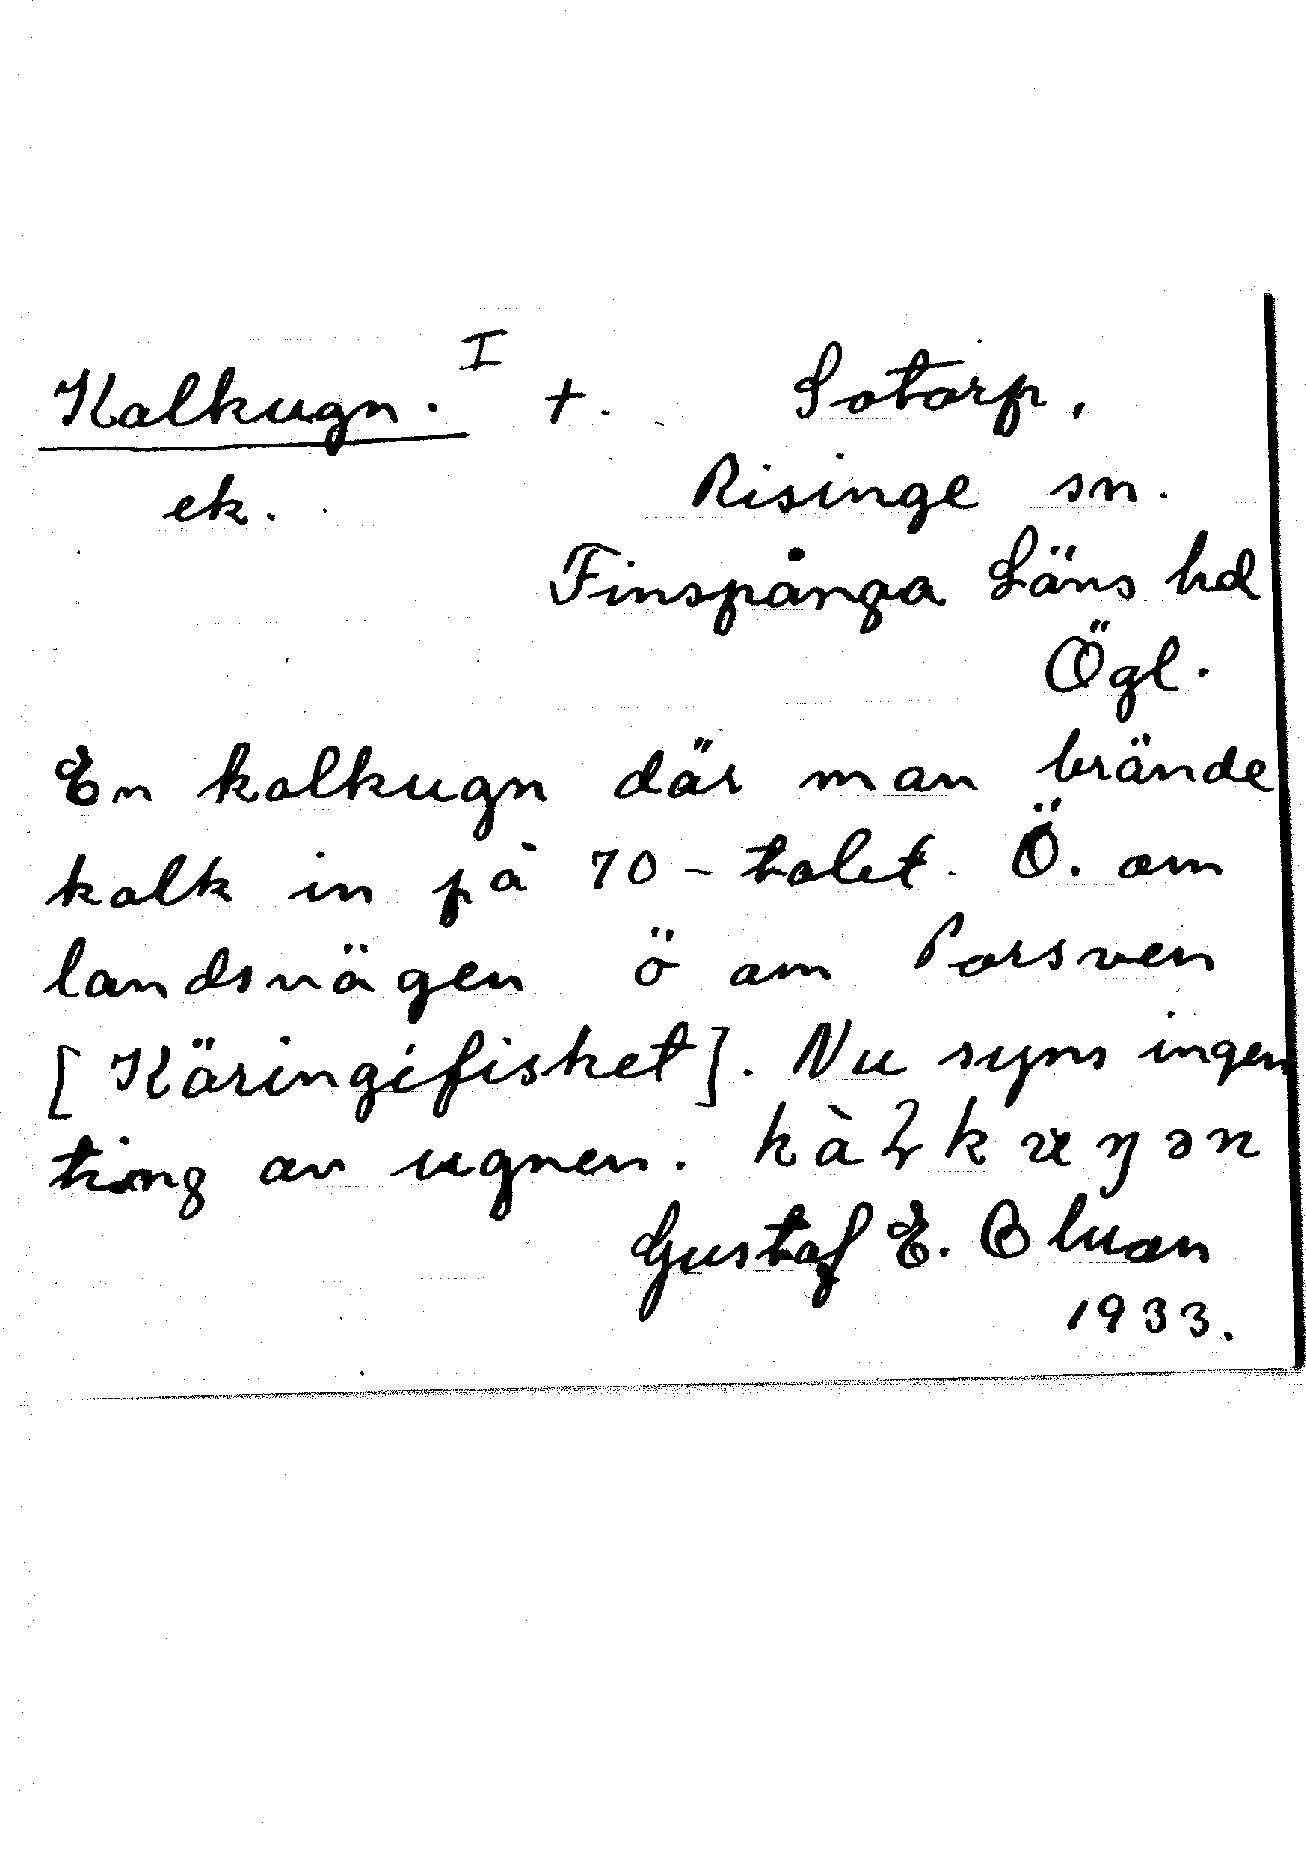 Kalkugn. I +. Sotorp,
ek. Risinge sn.
Finspånga Läns hd
Ögl.
En kalkugn där man brände
kalk in på 70-talet. Ö. om
landsvägen ö om Porsven
[Käringifisket]. Nu syns ingen
ting av ugnen.
Gustaf E.
1933.